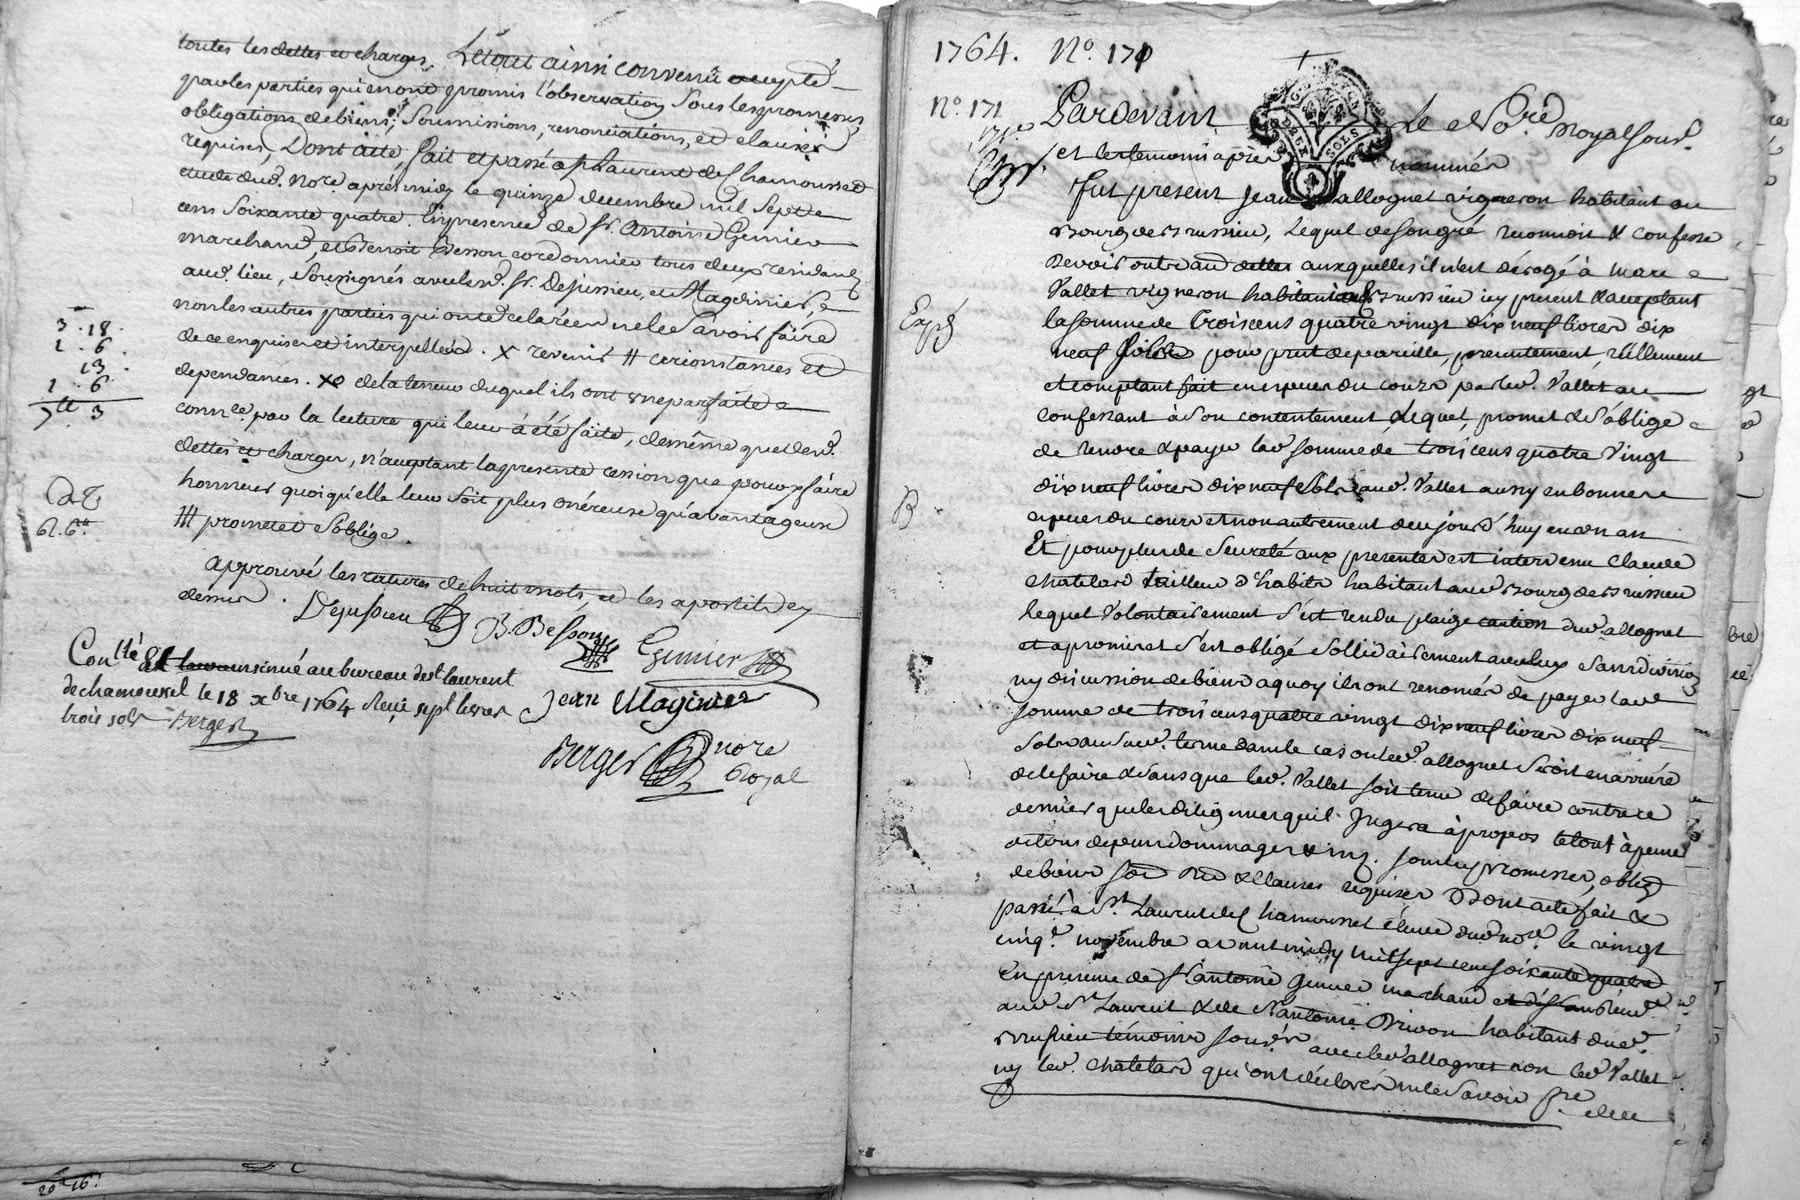 toutes les dettes et charges. Le tout ainsi convenu accepté
par les parties qui en ont promis l'observation sous les promesses,
obligations de biens, soumissions, renonciations, et clauses
requises, Dont acte, fait et passé a St Laurent de Chamousset
etude dud. Nore après midy le quinze decembre mil sept
cens soixante quatre En presence de sr. Antoine Gemier
marchand, et Benoit Besson cordonnier tous deux residants
aud. lieu, soussignés avec led. sr. Dejussieu, et Maginier,
non les autres parties qui ont declaré ne le savoir faire
de ce enquises et interpellées. X revenir # circonstances et
dependances. XO de la teneur duquel ils ont une parfaite
connce. par la lecture qui leur a été faite, de même que des d.
dettes et charges, n'acceptant la presente cession que pour faire
honneur quoiqu'elle leur soit plus onéreuse qu'avantageuse
#| promet et s'oblige.
3 . 18
1 . 6
13
1 . 6
7 tt 3
approuvé les ratures de huit mots, et les apostilles
dessus. Dejussieu B. Besson
Gemier
Conllé & insinué au bureau de st laurent
de chamousset le 18 xbre 1764 Reçu sept livres
trois sols Berger
Jean Maginier
Berger nore
Royal
1764. No. 170
No. 171
Pardevant Le No.re Royal sous.
et les temoins après nommés
Fut present Jean allognet vigneron habitant au
Bourg de Brussieu, Lequel de son gré reconnoit & confesse
Devoir outre aud dettes auxquelles il n'est dérogé à Marc
Vallet vigneron habitant aud Brussieu icy present & acceptant
la somme de Trois cens quatre vingt dix neuf livres dix
neuf sols pour pret de pareille, presentement, réellement
et comptant fait en especes du cours par led. Vallet au
confessant à son contentement, Lequel, promet & s'oblige
de rendre & payer lad somme de trois cens quatre vingt
dix neuf livres dix neuf sols aud. Vallet aussy en bonnes
especes du cours et non autrement de ce jourd'huy en un an
Expé
B
Et pour plus de seureté aux presentes est intervenu Claude
Chatelard tailleur d'habits habitant aud Bourg de Brussieu
Lequel volontairement s'est rendu pleige caution dud. allognet
et a promis et s'est obligé sollidairement avec luy sans division
ny discussion de biens a quoy ils ont renoncés de payer lad
somme de trois cens quatre vingt dix neuf livres dix neuf
sols aud terme dans le cas ou led. allognet seroit en arriere
de le faire & sans que led. Vallet soit tenu de faire contre ce
dernier que les diligences qu'il Jugera à propos le tout à peine
de tous depens dommages & int. sous les promesses, oblig
de biens & clauses requises Dont acte fait &
passé à St. Laurent de Chamousset étude dud nore. le vingt
cinq. novembre avant midy mil sept cens soixante quatre
En presence de sr antoine Gemier marchand
aud St Laurent & de st antoine Brivon habitant dud.
Brussieu témoins soussés avec led allognet non led Vallet
ny led. Chatelard qui ont déclarés ne le savoir fre